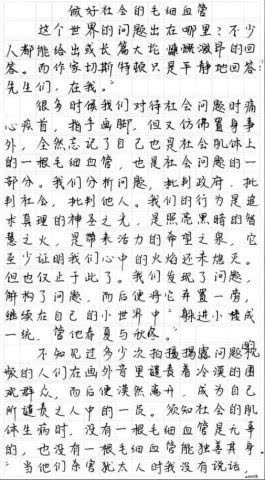 做好社会的毛细血管
这个世界的问题出在哪里?不少
人都能给出或长篇大论慷慨激昂的回
答。而作家切斯特顿只是平静地回答:“
先生们,在我。”
很多时候我们对待社会问题时痛
心疾首,指手画脚,但又仿佛置身事
外,全然忘记了自己也是社会肌体上
的一根毛细血管,也是社会问题的一
部分。我们分析问题,批判政府,批
判社会,批判他人。我们的行为是追
求真理的神圣之光,是照亮黑暗的智
慧之火,是带来活力的希望之泉,它
至少证明我们心中的火焰还未熄灭。
但也仅止于此了。我们发现了问题,
解构了问题,而后便将它弃置一旁,
继续在自己的小世界中“躲进小楼成
一统,管他春夏与秋冬。”
不知见过多少次拍摄揭露问题的视
频的人们在画外音里谴责着冷漠的围
观群众,而后便漠然离开,成为自己
所谴责之人中的一员。须知社会的肌
体生病时,没有一根毛细血管是无辜
的,也没有一根毛细血管能独善其身。
“当他们杀害犹太人时我没有说话,